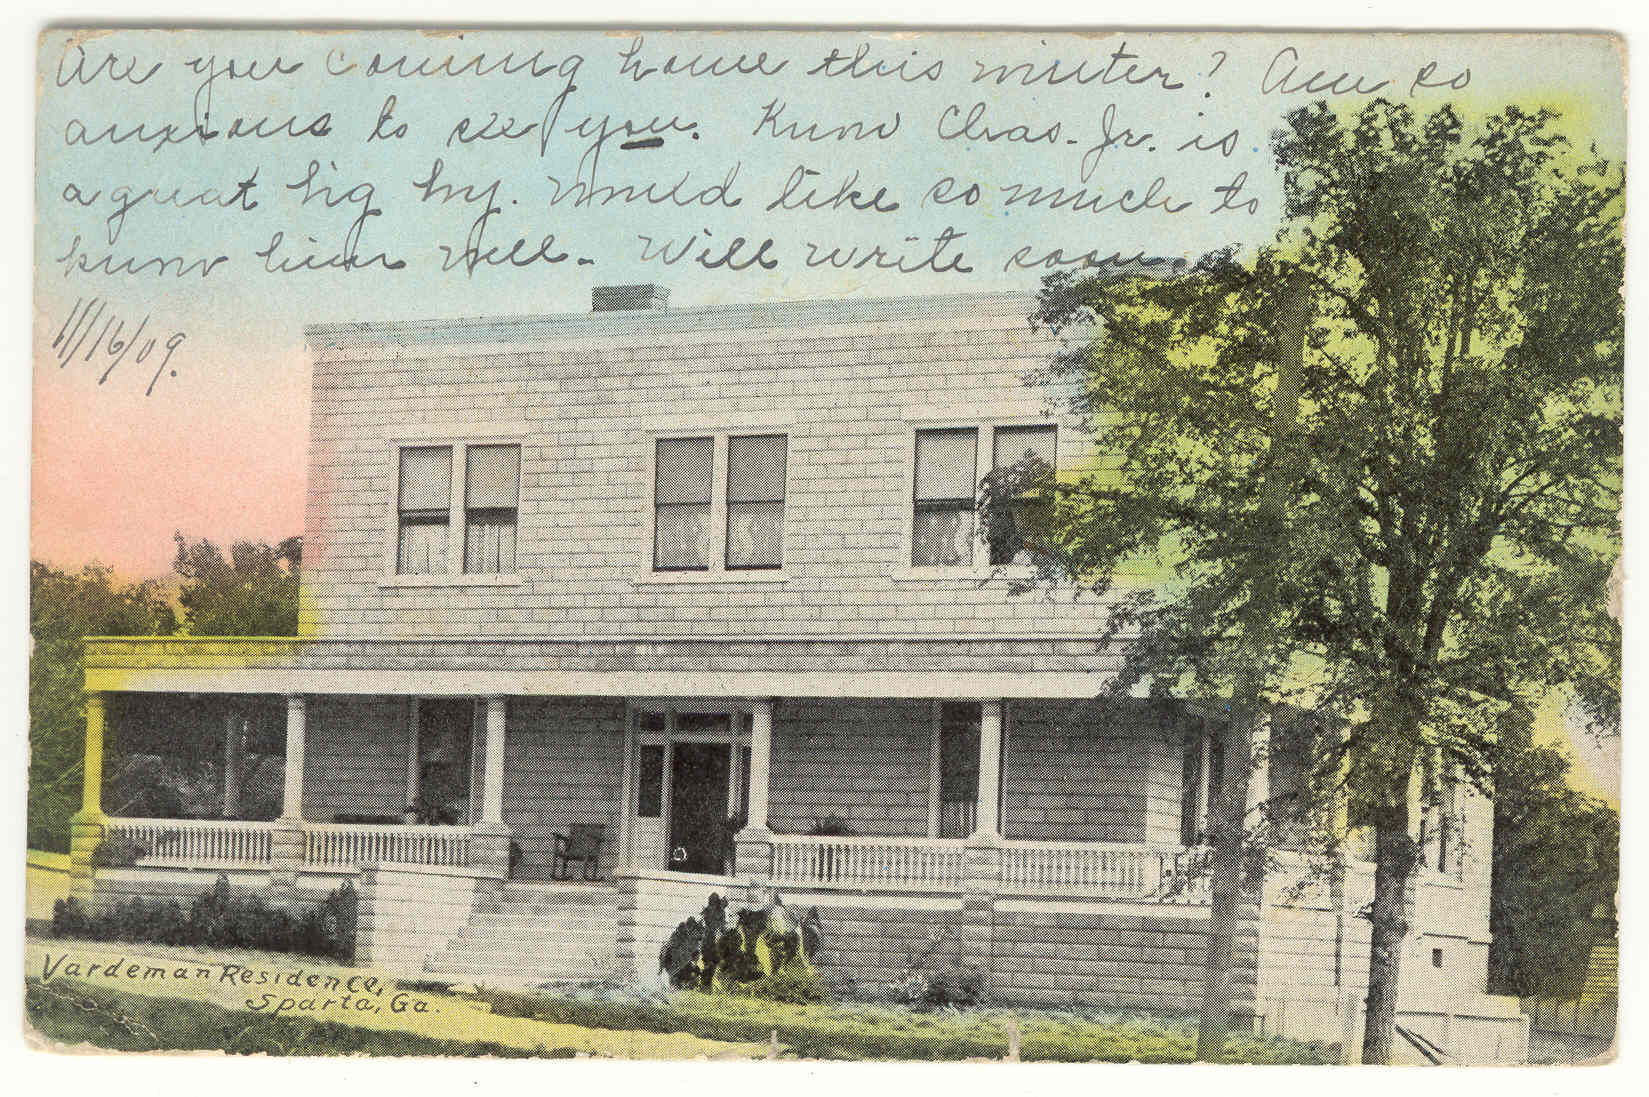 Are you coming home this winter? Am so
anxious to see you. Know Chas. Jr. is
a great big boy. Would like so much to
know him well. Will write soon.
11/16/09.
Vardeman Residence,
Sparta, Ga.